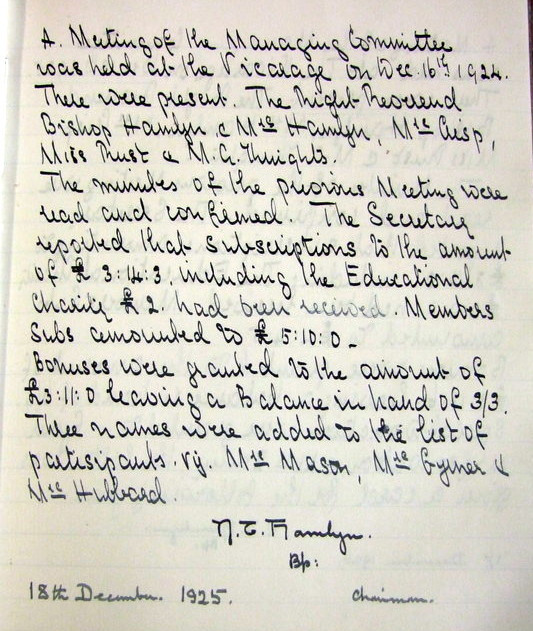 A. Meeting of the Managing Committee
was held at the Vicarage on Dec 16th 1924.
There were present. The Right Reverend
Bishop Hamlyn & Mrs Hamlyn, Mrs Crisp,
Miss Rust & Mr. Knights.
The minutes of the previous Meeting were
read and confirmed. The Secretary
reported that subscriptions to the amount
of £ 3.14.3. including the Educational
Charity £2. had been received Members
Subs amounted to £ 15:10:0 -
Bonuses were granted to the amount of
£3:11:0 leaving a Balance in hand of 3/3.
Three names were added to the list of
participants. viz. Mrs Mason, Mrs Gymer &
Mrs Hubbard
N. T. Hamlyn.
Bp:
18th December. 1925. Chairman.